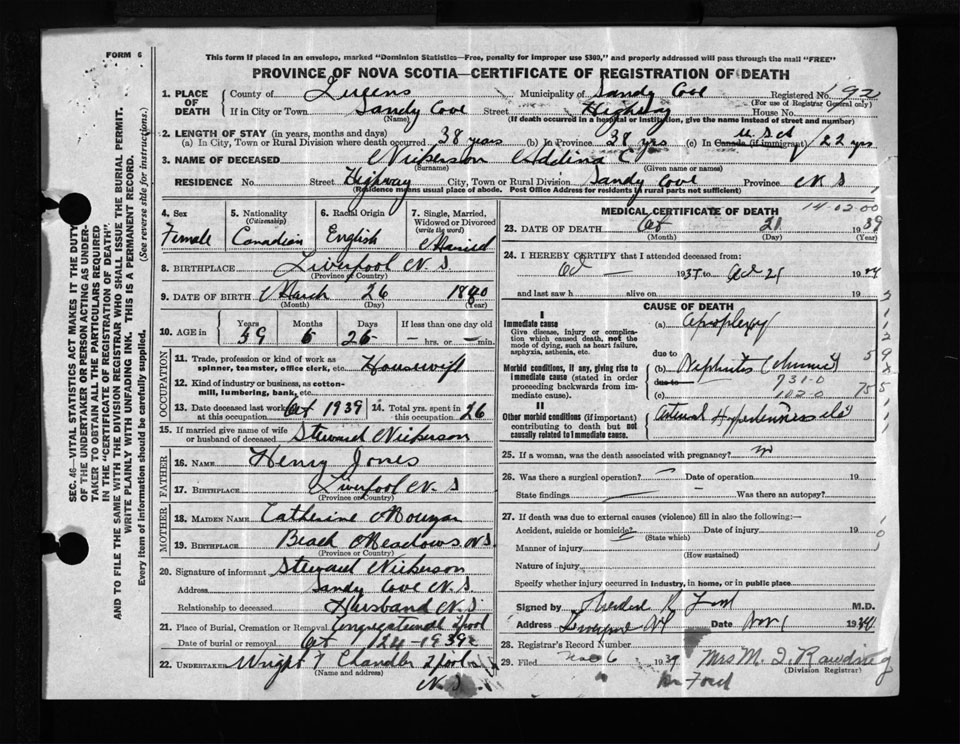 FORM 6
This form if placed in an envelope, marked "Dominion Statistics—Free, penalty for improper use $300," and properly addressed will pass through the mail "FREE"
PROVINCE OF NOVA SCOTIA—CERTIFICATE OF REGISTRATION OF DEATH
1. PLACE OF DEATH { County of Queens Municipality of Sandy Cove Registered No. 920
(For use of Registrar General only)
If in City or Town Sandy Cove Street Highway House No.
(Name) (If death occurred in a hospital or institution, give the name instead of street and number)
2. LENGTH OF STAY (in years, months and days)
(a) In City, Town or Rural Division where death occurred 38 years (b) In Province 38 yrs (c) In Canada (if immigrant) 22 yrs
3. NAME OF DECEASED Nickerson Adelina C.
(Surname) (Given name or names)
RESIDENCE No. Street Highway City, Town or Rural Division Sandy Cove Province N.S.
(Residence means usual place of abode. Post Office Address for residents in rural parts not sufficient)
4. Sex Female
5. Nationality (Citizenship) Canadian
6. Racial Origin English
7. Single, Married, Widowed or Divorced (write the word) Married
8. BIRTHPLACE Liverpool N.S.
(Province or Country)
9. DATE OF BIRTH March 26 1880
(Month) (Day) (Year)
10. AGE in Years 59 Months 6 Days 25 If less than one day old
— hrs. or — min.
OCCUPATION
11. Trade, profession or kind of work as spinner, teamster, office clerk, etc. Housewife
12. Kind of industry or business, as cotton-mill, lumbering, bank, etc.
13. Date deceased last worked at this occupation Oct 1939
14. Total yrs. spent in this occupation 26
15. If married give name of wife or husband of deceased Steward Nickerson
FATHER
16. NAME Henry Jones
17. BIRTHPLACE Liverpool N.S.
(Province or Country)
MOTHER
18. MAIDEN NAME Catherine
19. BIRTHPLACE Beach Meadows N.S.
(Province or Country)
20. Signature of informant Steward Nickerson
Address Sandy Cove N.S.
Relationship to deceased Husband N.S.
21. Place of Burial, Cremation or Removal Congregational L'pool
Date of burial or removal Oct 24 - 1939
22. UNDERTAKER Wright T Chandler L'pool
(Name and address) N.S.
MEDICAL CERTIFICATE OF DEATH 14-02-00
23. DATE OF DEATH Oct 21 1939
(Month) (Day) (Year)
24. I HEREBY CERTIFY that I attended deceased from:
Oct — 1937 to Oct 21 19
and last saw h alive on 19
CAUSE OF DEATH
I
Immediate cause
Give disease, injury or complication which caused death, not the mode of dying, such as heart failure, asphyxia, asthenia, etc.
(a) Apoplexy
due to
Morbid conditions, if any, giving rise to immediate cause (stated in order proceeding backwards from immediate cause).
(b) Nephritis (chronic)
due to 731-0
(c) 102-0
II
Other morbid conditions (if important) contributing to death but not causally related to immediate cause.
Arterial Hypertension
25. If a woman, was the death associated with pregnancy? no
26. Was there a surgical operation? — Date of operation 19
State findings — Was there an autopsy?
27. If death was due to external causes (violence) fill in also the following:—
Accident, suicide or homicide? Date of injury 19
(State which)
Manner of injury
(How sustained)
Nature of injury
Specify whether injury occurred in industry, in home, or in public place
Signed by M.D.
Address Liverpool N.S. Date Nov 1 1939
28. Registrar's Record Number
29. Filed Nov 6 1939 Mrs M. J. Rawding
(Division Registrar)
Dr Ford
SEC. 46—VITAL STATISTICS ACT MAKES IT THE DUTY OF THE UNDERTAKER OR PERSON ACTING AS UNDERTAKER TO OBTAIN ALL THE PARTICULARS REQUIRED IN THE "CERTIFICATE OF REGISTRATION OF DEATH" AND TO FILE THE SAME WITH THE DIVISION REGISTRAR WHO SHALL ISSUE THE BURIAL PERMIT.
WRITE PLAINLY WITH UNFADING INK. THIS IS A PERMANENT RECORD.
Every item of information should be carefully supplied. (See reverse side for instructions.)